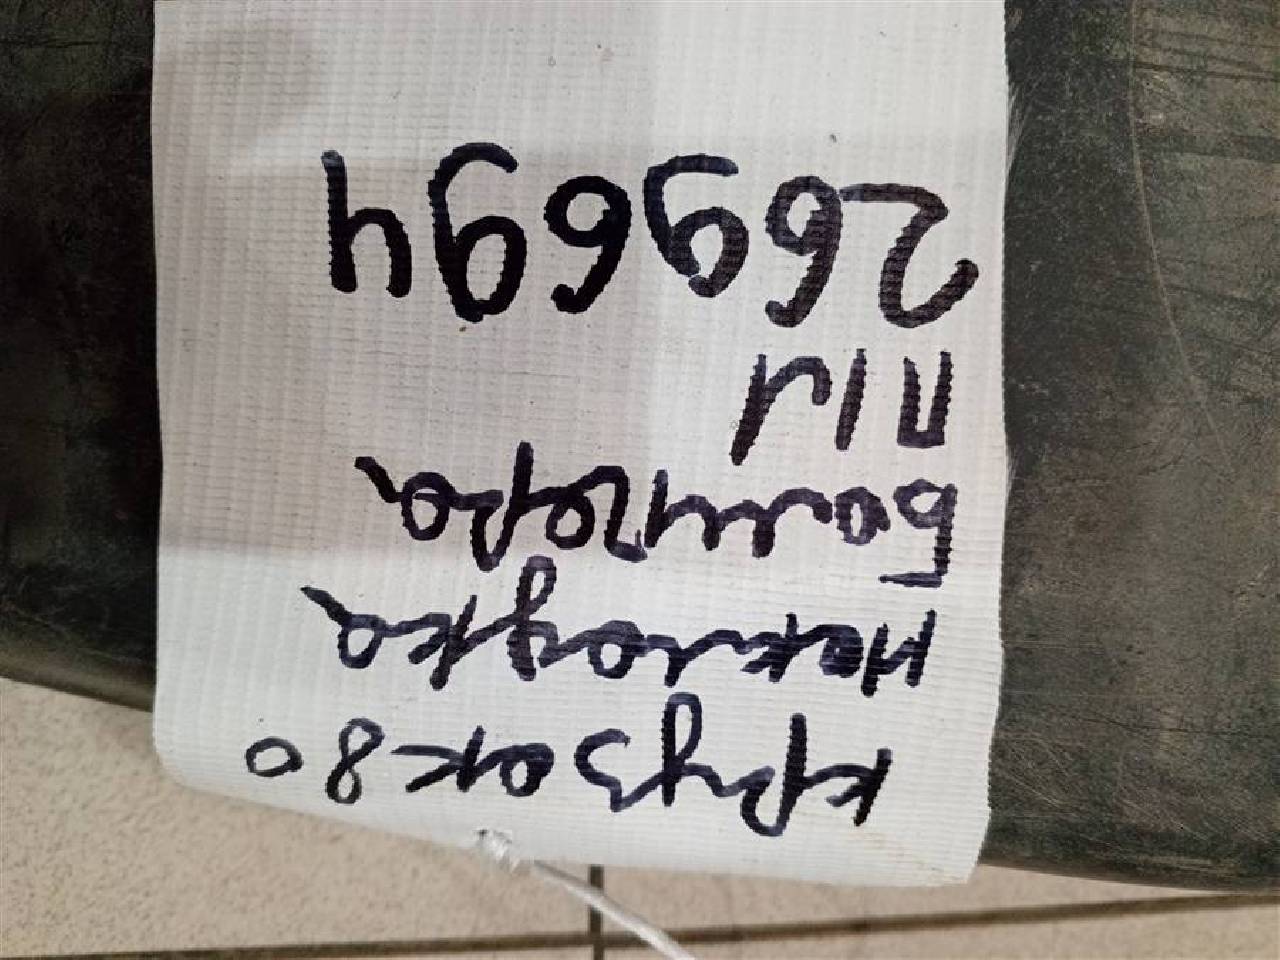 крузак 80
накладка
бампера
П/Л
269694